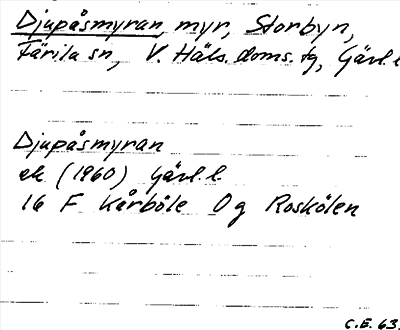 Djupåsmyran, myr, Storbyn,
Färila sn, V. Häls. doms. tg, Gävl. l
Djupåsmyran
ek (1960) Gävl. l.
16 F Kårböle Og Roskölen
C.E. 63.